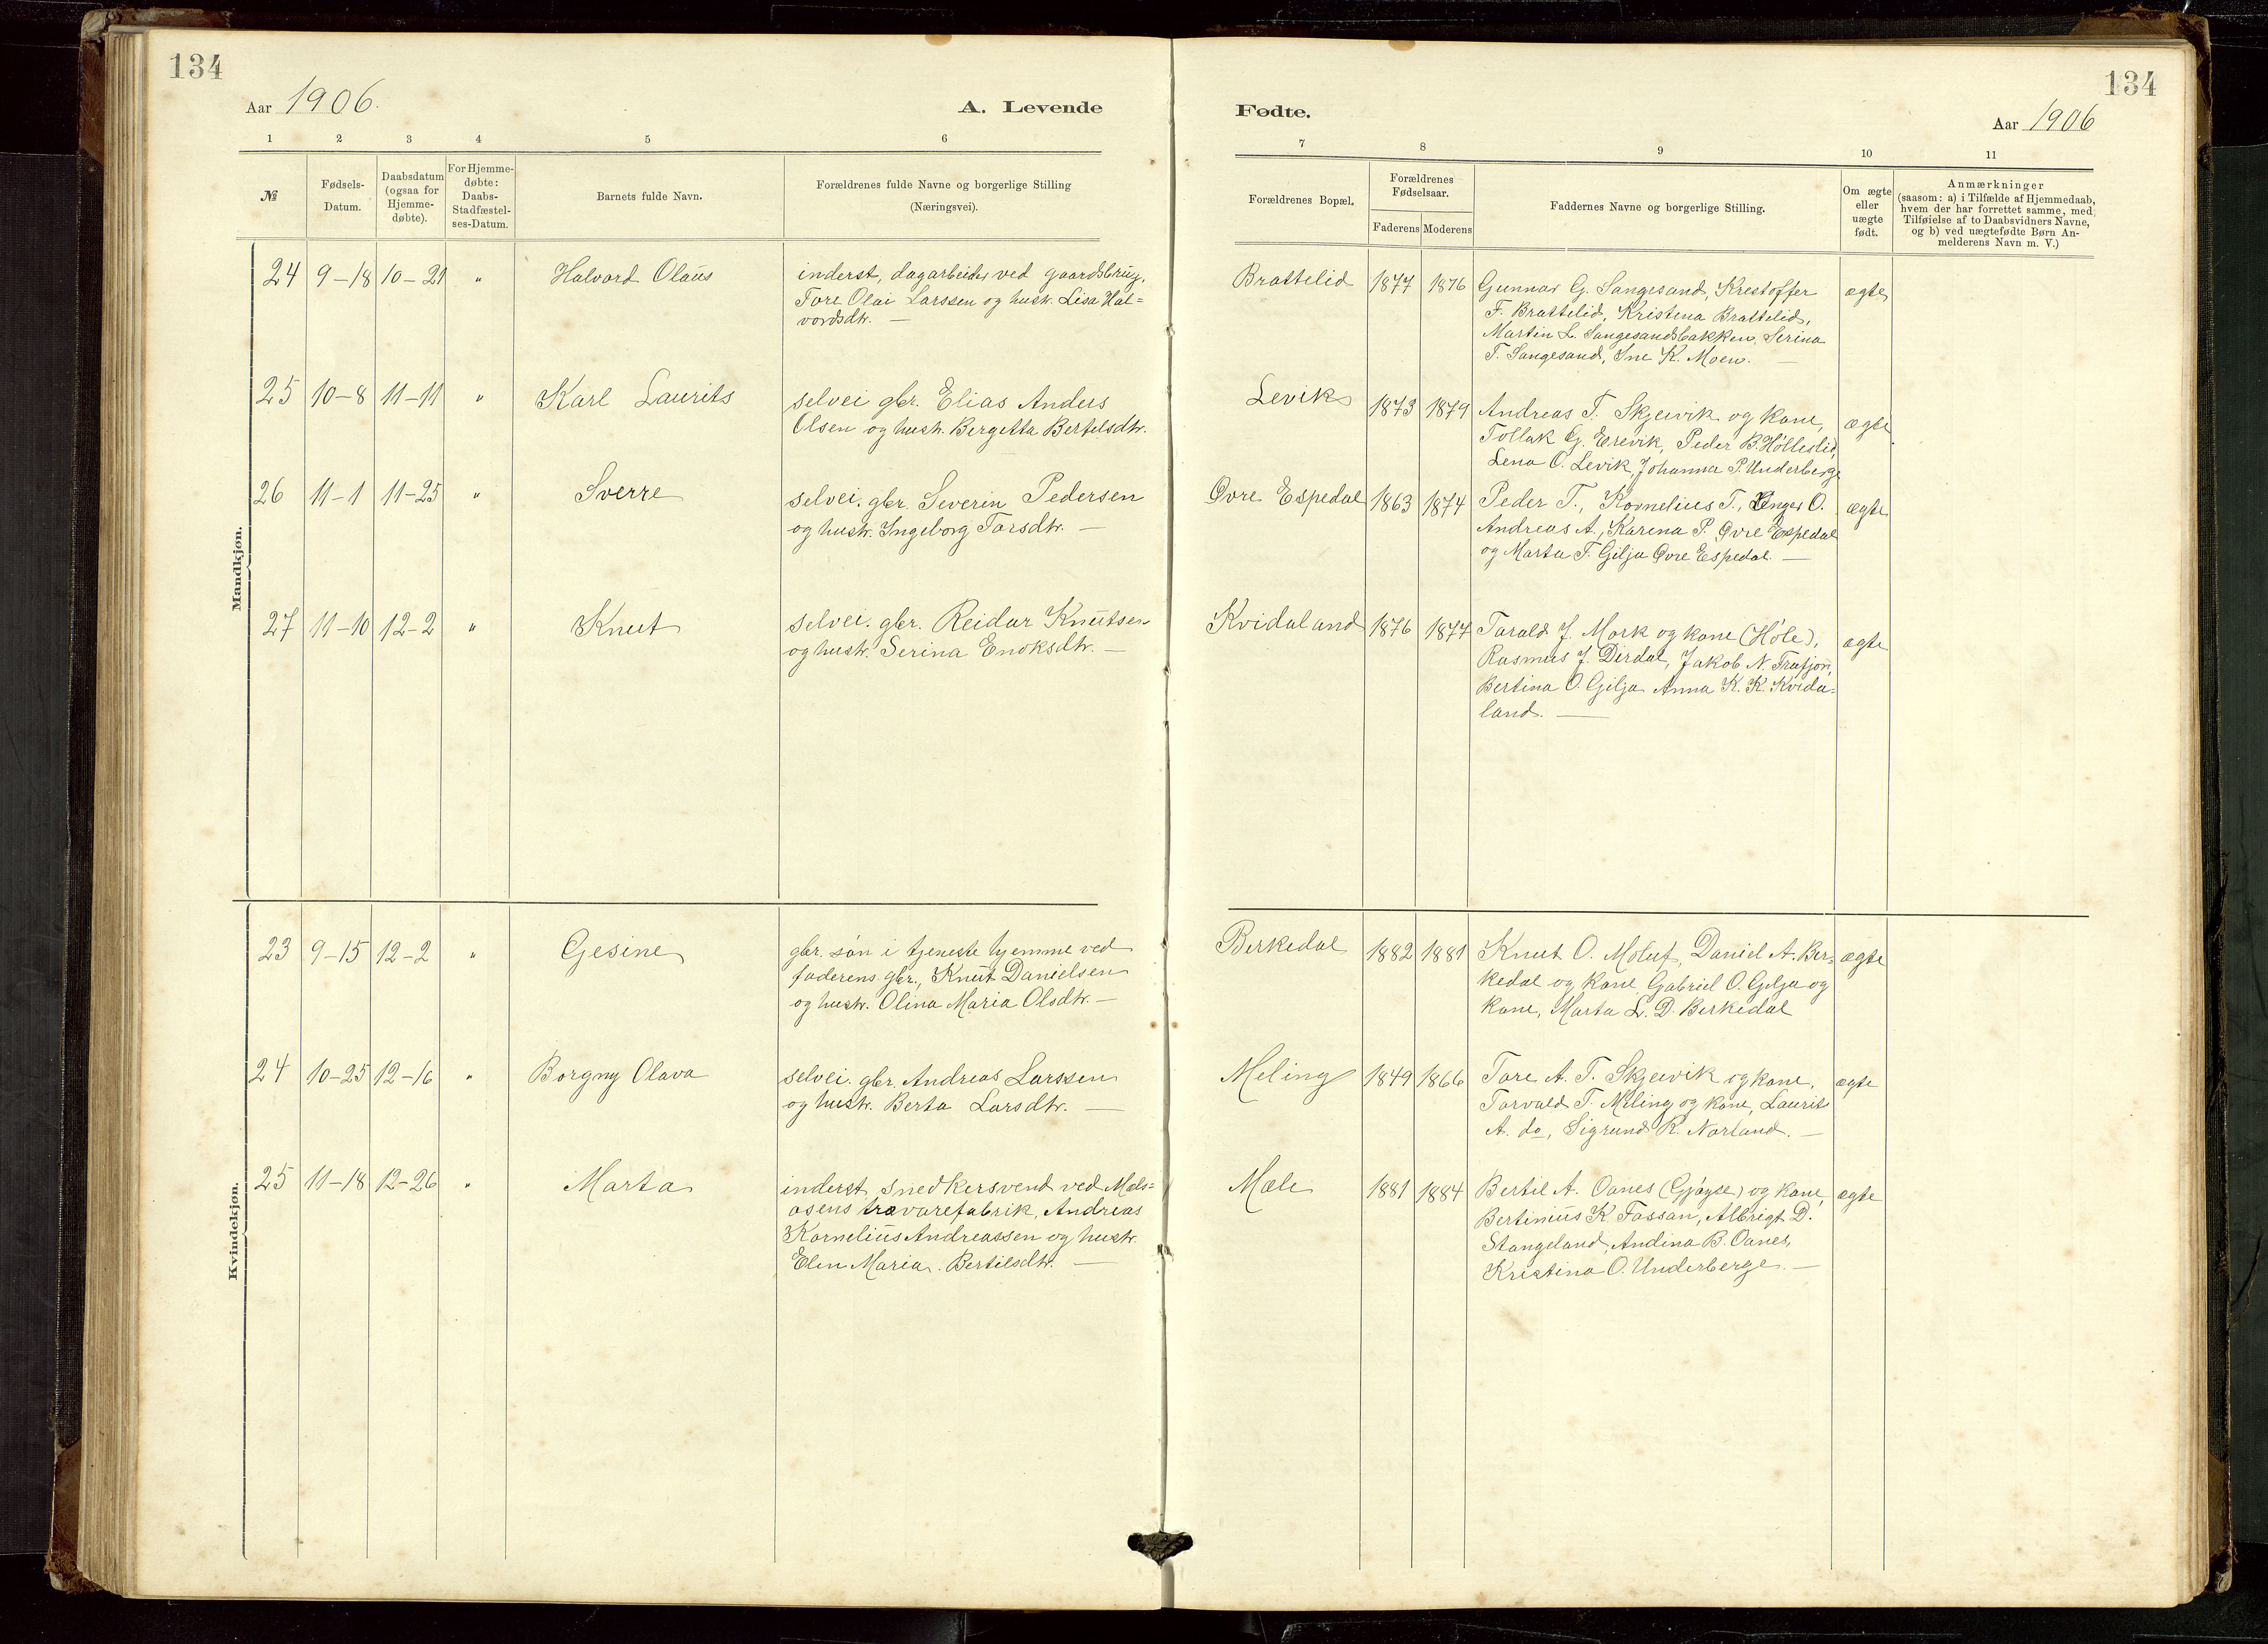 134
Aar 1906.
A. Levende
1 2 3 4 5 6
№
Fødsels-
Datum.
Daabsdatum
(ogsaa for
Hjemme-
døbte).
For Hjemme-
døbte:
Daabs-
Stadfæstel-
ses-Datum.
Barnets fulde Navn.
Forældrenes fulde Navne og borgerlige Stilling
(Næringsvei).
Mandkjøn.
24 9-18 10-21 " Halvard Olaus
inderst, dagarbeider ved gaardsbrug,
Tore Olai Larssen og hustr. Lisa Hal-
vordsdtr. —
25 10-8 11-11 " Karl Laurits
selvei gbr. Elias Anders
Olsen og hustr. Bergetta Bertelsdtr.
26 11-1 11-25 " Sverre
selvei. gbr. Severin Pedersen
og hustr. Ingeborg Tarsdtr. —
27 11-10 12-2 " Knut
selvei. gbr. Reidar Knutsen
og hustr. Serina Enoksdtr. —
Kvindekjøn.
23 9-15 12-2 " Gesine
gbr. søn i tjeneste hjemme ved
faderens gbr., Knut Danielsen
og hustr. Olina Maria Olsdtr. —
24 10-25 12-16 " Borgny Olava
selvei. gbr. Andreas Larssen
og hustr. Berta Larsdtr. —
25 11-18 12-26 " Marta
inderst, snedkersvend ved Mæls-
osens trævarefabrik, Andreas
Kornelius Andreassen og hustr.
Elen Maria Bertilsdtr. —
134
Fødte.
Aar 1906
7 8 9 10 11
Forældrenes Bopæl.
Forældrenes
Fødselsaar.
Faderens Moderens
Faddernes Navne og borgerlige Stilling.
Om ægte
eller
uægte
født.
Anmærkninger
(saasom: a) i Tilfælde af Hjemmedaab,
hvem der har forrettet samme, med
Tilføielse af to Daabsvidners Navne,
og b) ved uægtefødte Børn An-
melderens Navn m. V.)
Brattelid 1877 1876 Gunnar G. Sangesand, Krestoffer ægte
F. Brattelid, Kristina Brattelid,
Martin L. Sangesandsbakken, Serina
T. Sangesand, Ine K. Moen. —
Levik 1873 1879 Andreas T. Skjeivik og kone, ægte
Tollak G. Erevik, Peder B. Hølleslid,
Lena O. Levik, Johanna P. Underberge
Øvre Espedal 1863 1874 Peder T., Kornelius T., Inger O. ægte
Andreas A., Karina P. Øvre Espedal
og Marta T. Gilja Øvre Espedal. —
Kvidaland 1876 1877 Tarald J. Mork og kone (Høle), ægte
Rasmus J. Dirdal, Jakob N. Frafjord,
Bertina O. Gilja Anna K. K. Kvida-
land. —
Berkedal 1882 1881 Knut O. Moluf, Daniel A. Ber- ægte
kedal og kone, Gabriel O. Gilja og
kone, Marta L. D. Berkedal
Meling 1849 1866 Tore A. T. Skjeivik og kone, ægte
Torvald T. Meling og kone, Laurits
A. do, Sigrund R. Norland. —
Mæle 1881 1884 Bertil A. Oanes (Gjøyse) og kone, ægte
Bertinius K. Fossan, Albrigt D.
Stangeland, Andina B. Oanes,
Kristina O. Underberge. —